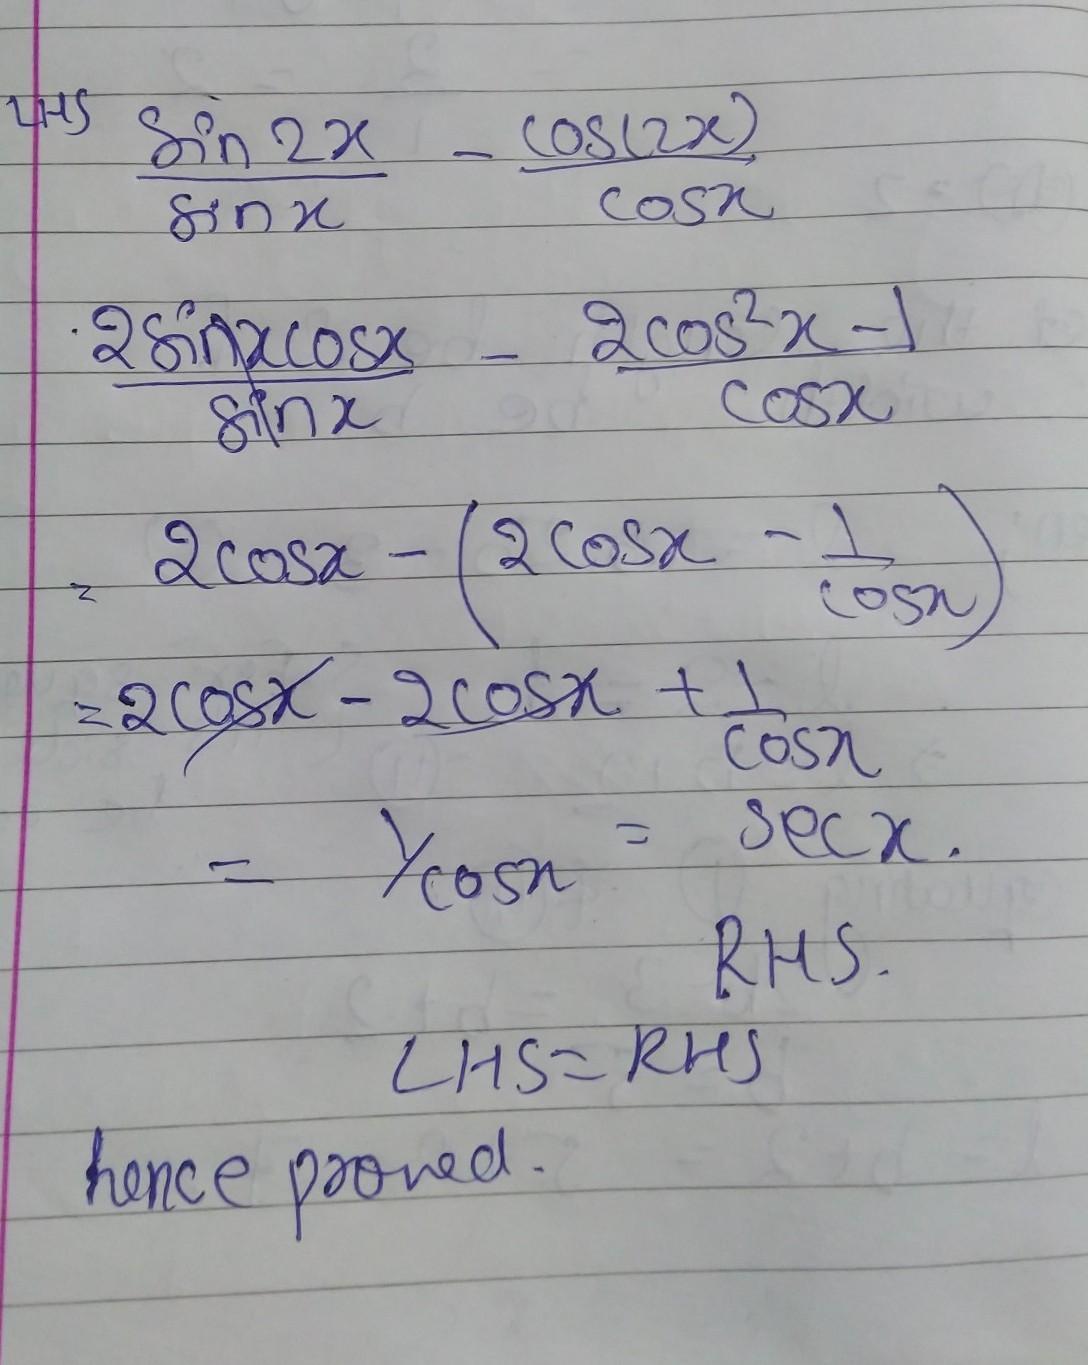 LHS sin2x/sinx - cos(2x)/cosx
2sinxcosx/sinx - 2cos²x-1/cosx
= 2cosx - (2cosx - 1/cosx)
= 2cosx - 2cosx + 1/cosx
= 1/cosx = secx.
RHS.
LHS = RHS
hence proved.